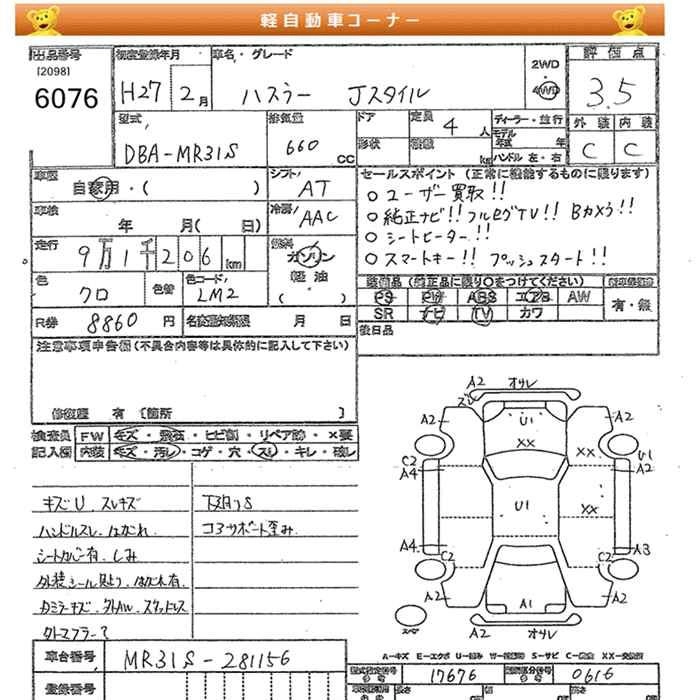 軽自動車コーナー
出品番号
[2098]
6076
初度登録年月
H27 2月
車名・グレード
ハスラー Jスタイル
2WD
・
4WD
評価点
3.5
外装 内装
C C
型式
DBA-MR31S
排気量
660 CC
ドア
形状
定員
4 人
積載
kg
ディーラー・並行
モデル年式 年
ハンドル 左・右
車歴
自家用・( )
シフト
AT
車検
年 月( 日)
冷房
AAC
走行
9万1千206 km
燃料
ガソリン
軽油
( )
色
クロ
色替
色コード
LM2
R券
8860 円
名変通知期限 月 日
セールスポイント(正常に機能するものに限ります)
○ユーザー買取!!
○純正ナビ!! フルセグTV!! Bカメラ!!
○シートヒーター!!
○スマートキー!! プッシュスタート!!
装備品(純正品に限り○をつけてください)
PS PW ABS エアB AW
SR ナビ TV カワ
有・無
後日品
注意事項申告欄(不具合内容等は具体的に記入して下さい)
修復歴 有〔箇所 〕
検査員記入欄
FW キズ・飛石・ヒビ割・リペア跡・×要
内装 キズ・汚レ・コゲ・穴・スレ・キレ・破レ
キズU、スレキズ
ハンドルスレ、はがれ
シートカバー有、しみ
下廻りS
コアサポート歪み
A2 オサレ
ズレ
A2 A2
U1
XX
C2
A4
XX
U1
A2
U1
XX
A4
C2
C2
A3
A2
A1
A2
スペア
A2 オサレ
A-キズ E-エクボ U-凹み W-波割れ S-サビ C-腐食 XX-交換済
車台番号
MR31S-281156
型式指定番号
17676
類別区分番号
0616
登録番号
長さ